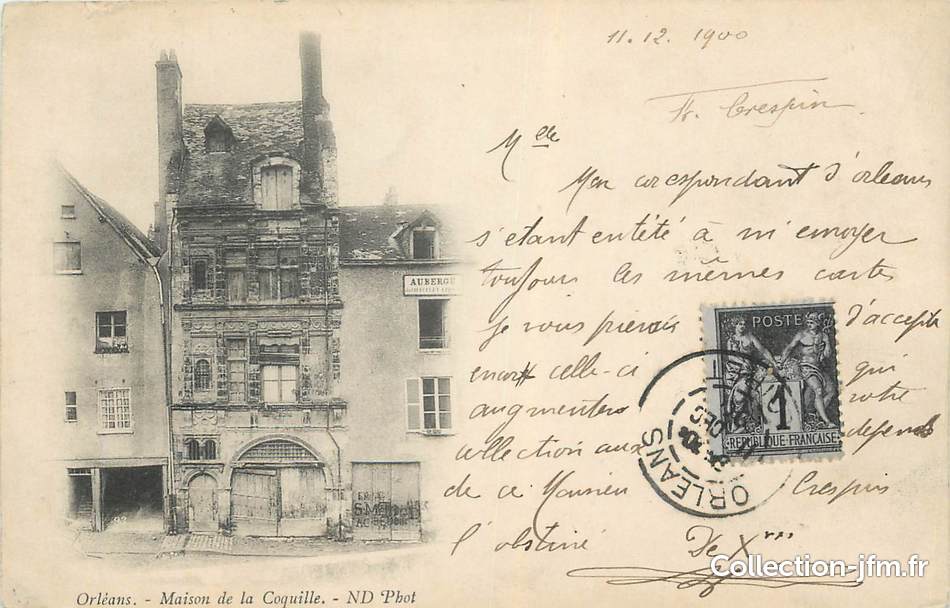 11.12.1900
Crespin
Mlle
Mon corespondant d'orleans
s'etant entété à m'envoyer
toujours les mêmes cartes
je vous pierais d'accepter
encore celle-ci qui
augmentera votre
collection aux depends
de ce Monsieur Crespin
l'obstiné De X
AUBERGE
POSTE
1
REPUBLIQUE FRANÇAISE
ORLEANS
Orléans. - Maison de la Coquille. - ND Phot
Collection-jfm.fr